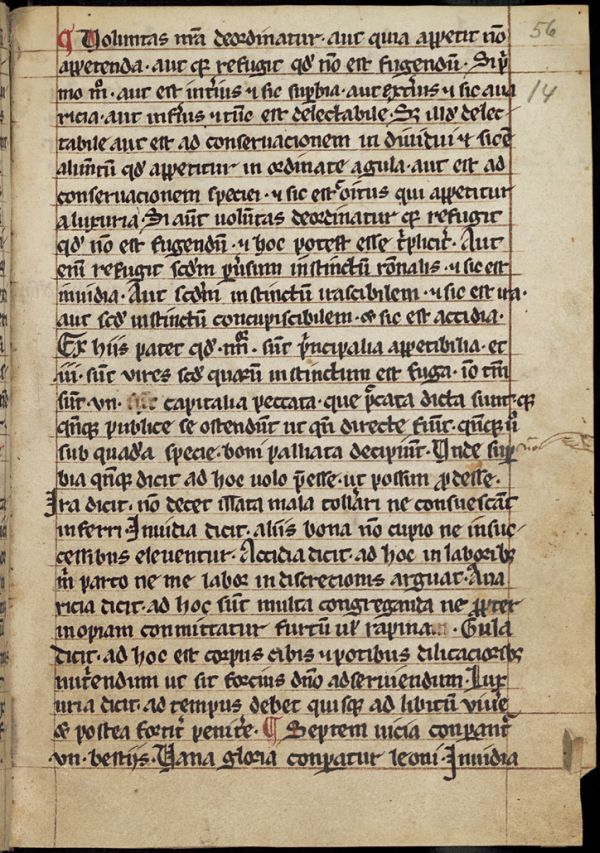 56
14
¶ Uoluntas nr̄a deordinatur· aut quia appetit nō
appetenda· aut qꝛ refugit qd̓ nō est fugendū· Si pͥ
mo mͦ· aut est int̓ius ⁊ sic suꝑbia· aut ext̓ius ⁊ sic aua
ricia· aut inf̓ius ⁊ tūc est delectabile· Sꝫ illd̓ delec
tabile aut est ad conseruacionem indiuidui ⁊ sic ē
alim̄tū qd̓ appetitur in ordinate a gula· aut est ad
conseruacionem speciei· ⁊ sic est coitus qui appetitur
a luxuria· Si aūt uolūtas deordinatur qꝛ refugit
qd̓ nō est fugendū· ⁊ hoc potest esse tͥplicit̓· Aut
eni̅ refugit scd̓m instinctū rōnalis· ⁊ sic est
inuidia· Aut scd̓m instinctū irascibilem· ⁊ sic est ira·
aut scd̓ instinctū concupiscibilem· ⁊ sic est accidia·
Ex hiis patet qd̓· sūt pͥncipalia appetibilia· et
iii· sūt vires scd̓ quarū instinctum est fuga· iō tm̄
sūt· vii· capitalia peccata· que pͨcata dicta sunt· qꝛ
qn̄qꝫ publice se ostendūt ut qn̄ directe fiūt· qn̄qꝫ ū
sub quadā specie· boni palliata decipiūt· Unde suꝑ
bia qn̄qꝫ dicit ad hoc uolo p̄esse· ut possim ꝓdesse·
Ira dicit· nō decet ista mala toll̓ari ne consuescāt
inferri· Inuidia dicit· aliis bona nō cupio ne in suc
cessibus eleuentur· Accidia dicit· ad hoc in laboribꝫ
m̄ parco ne me labor indiscretionis arguat· Aua
ricia dicit· ad hoc sūt multa congreganda ne ꝓpter
inopiam committatur furtū ul̓ rapina· Gula
dicit· ad hoc est corpus cibis ⁊ potibus dilicacioribꝫ
nut̓endum ut sit forcius dn̄o adseruiendum· Lux
uria dicit· ad tempus debet quisqꝫ ad libitū viue̓
⁊ postea fortit̓ penite̓· ¶ Septem uicia conparāt̓
vii· bestiis· Uana gloria conparatur leoni· Inuidia